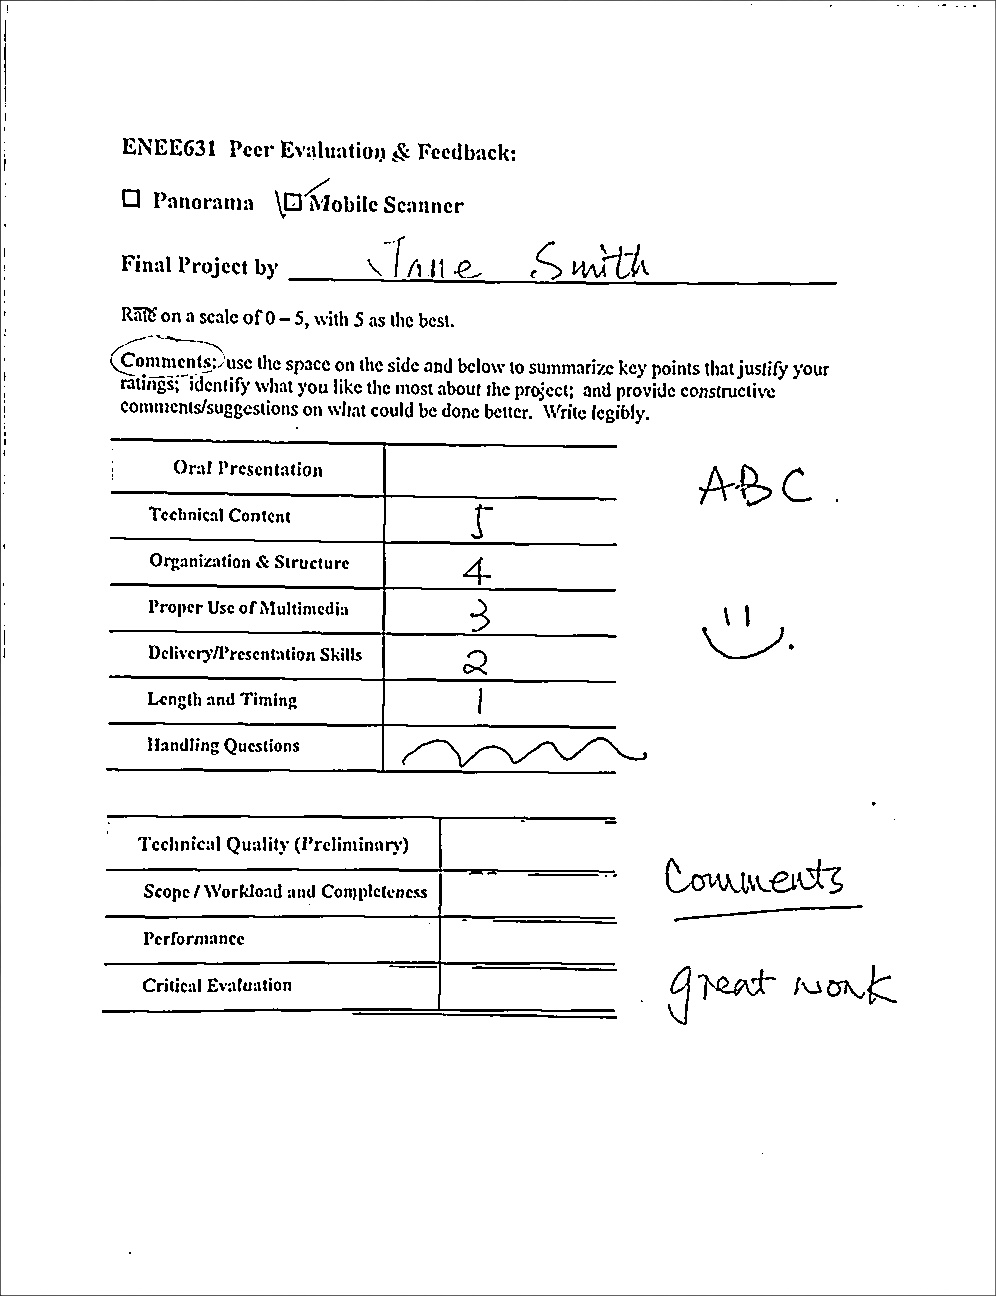 ENEE631 Peer Evaluation & Feedback:
Panorama Mobile Scanner
Final Project by Jane Smith
Rate on a scale of 0 – 5, with 5 as the best.
Comments: use the space on the side and below to summarize key points that justify your
ratings; identify what you like the most about the project; and provide constructive
comments/suggestions on what could be done better. Write legibly.
Oral Presentation
ABC.
Technical Content 5
Organization & Structure 4
Proper Use of Multimedia 3
Delivery/Presentation Skills 2
Length and Timing 1
Handling Questions
Technical Quality (Preliminary)
Comments
Scope / Workload and Completeness
Performance
Critical Evaluation
great work